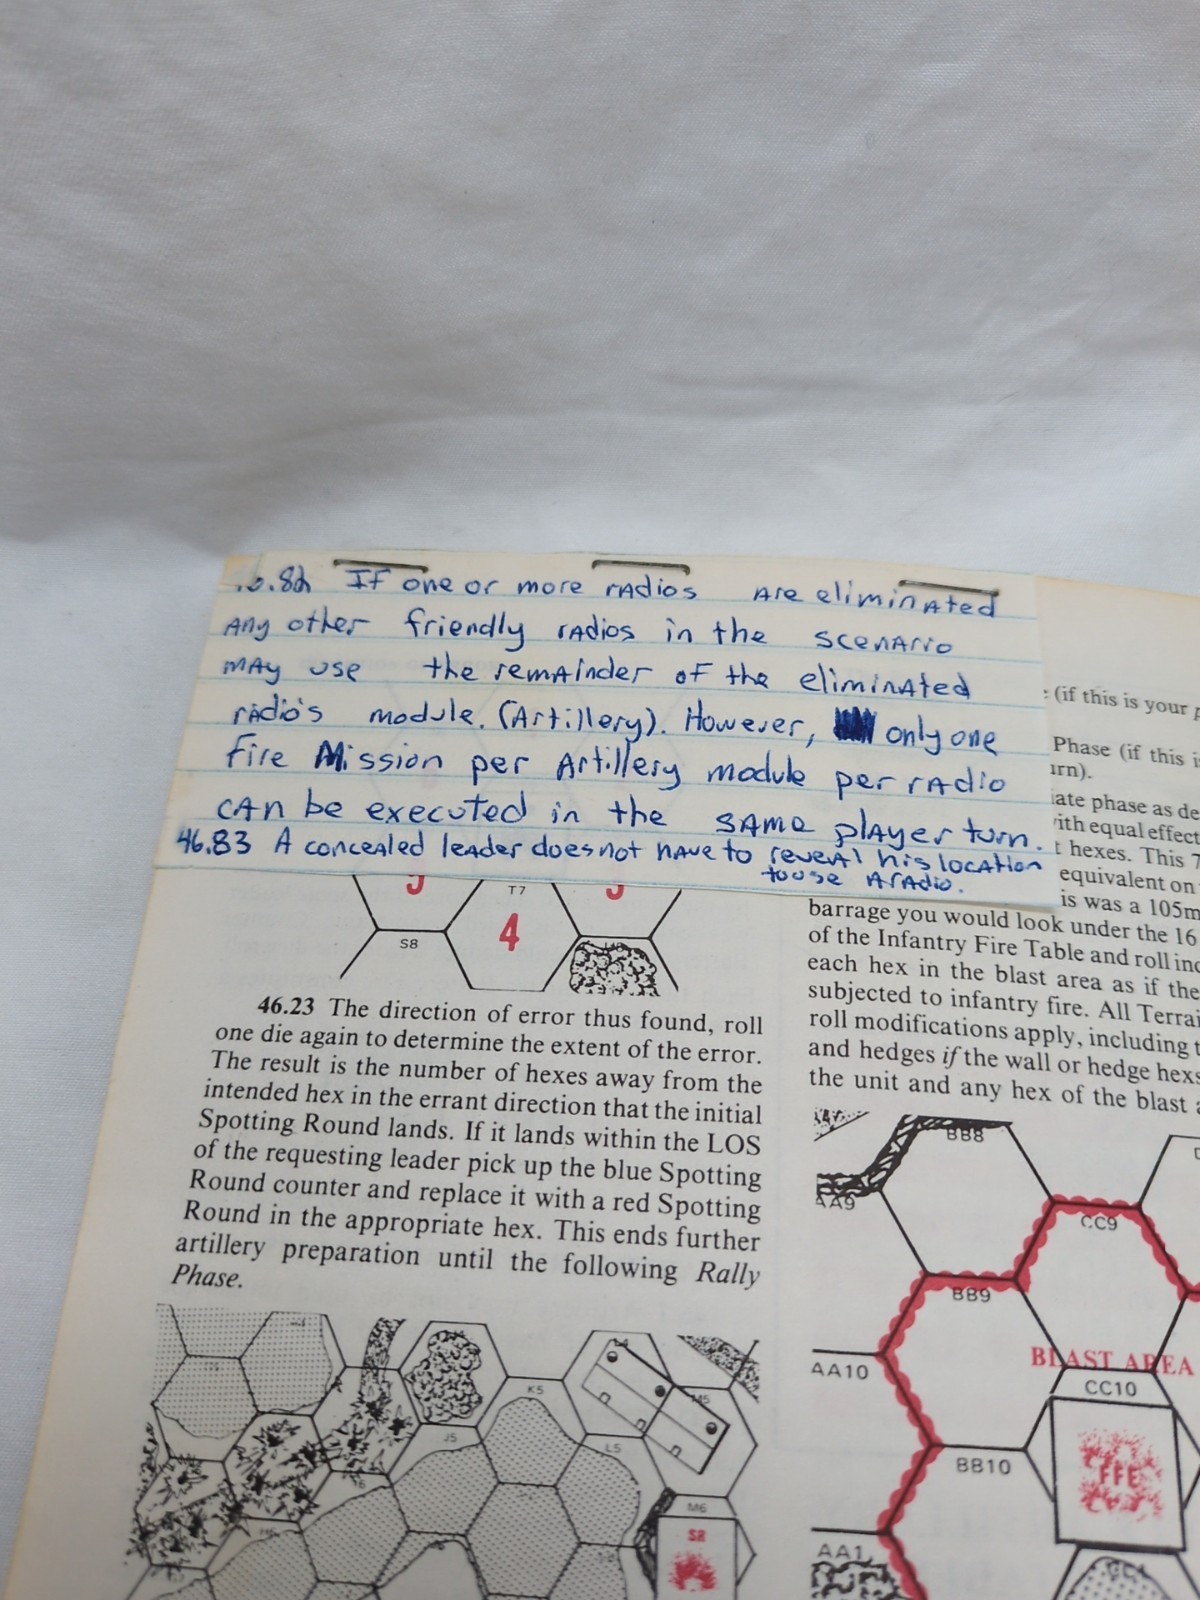 .82 If one or more radios are eliminated
any other friendly radios in the scenario
may use the remainder of the eliminated
radio's module. (Artillery). However, only one
Fire Mission per Artillery module per radio
can be executed in the same player turn.
46.83 A concealed leader does not have to reveal his location
to use A radio.
T7
S8
4
46.23 The direction of error thus found, roll
one die again to determine the extent of the error.
The result is the number of hexes away from the
intended hex in the errant direction that the initial
Spotting Round lands. If it lands within the LOS
of the requesting leader pick up the blue Spotting
Round counter and replace it with a red Spotting
Round in the appropriate hex. This ends further
artillery preparation until the following Rally
Phase.
K5
J5
L5
M5
M6
SR
(if this is your
Phase (if this
phase as
equal effect
hexes. This
equivalent on
is was a 105m
barrage you would look under the 16
of the Infantry Fire Table and roll
each hex in the blast area as if the
subjected to infantry fire. All
roll modifications apply, including
and hedges if the wall or hedge
the unit and any hex of the blast
BB8
AA9
CC9
BB9
BLAST AREA
AA10
CC10
BB10
FFE
AA1